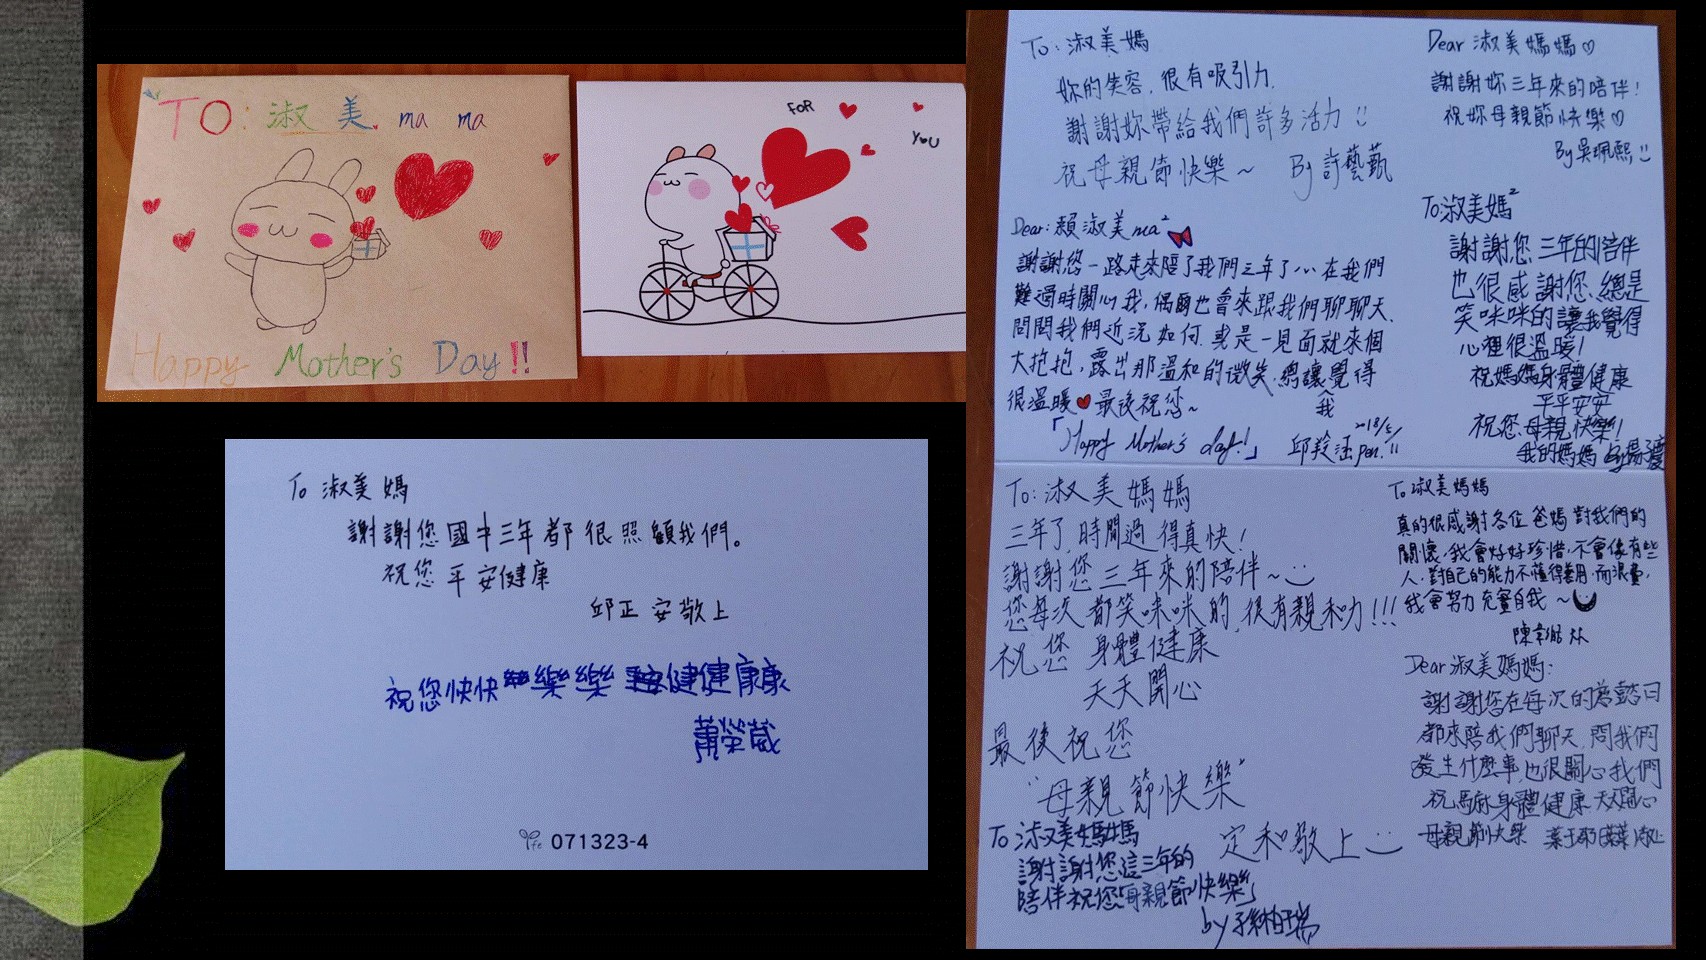 TO: 淑美 ma ma
Happy Mother's Day!!
FOR
YOU
To 淑美媽
謝謝您國中三年都很照顧我們。
祝您平安健康
邱正安敬上
祝您快快樂樂健健康康
071323-4
To: 淑美媽
妳的笑容,很有吸引力,
謝謝妳帶給我們許多活力!!
祝母親節快樂~ By 許藝
Dear: 賴淑美 ma²
謝謝您一路走來陪了我們三年了,在我們
難過時關心我,偶爾也會來跟我們聊聊天,
問問我們近況如何,或是一見面就來個
大抱抱,露出那溫和的微笑,總讓我覺得
很溫暖♥最後祝您~
「Happy Mother's day!」
2018/5/
邱羚涵 pen.!!
Dear 淑美媽媽♡
謝謝妳三年來的陪伴!
祝妳母親節快樂♡
By 吳珮熙
To 淑美媽²
謝謝您三年的陪伴
也很感謝您,總是
笑咪咪的讓我覺得
心裡很溫暖!
祝媽媽身體健康
平平安安
祝您母親快樂!
我的媽媽
To: 淑美媽媽
三年了,時間過得真快!
謝謝您三年來的陪伴~
您每次都笑咪咪的,很有親和力!!!
祝您 身體健康
天天開心
最後祝您
"母親節快樂"
定和敬上
To 淑美媽媽
謝謝您這三年的
陪伴祝您母親節快樂
by 孫柏瑞
To 淑美媽媽
真的很感謝各位爸媽對我們的
關懷,我會好好珍惜,不會像有些
人,對自己的能力不懂得善用,而浪費,
我會努力充實自我~
Dear 淑美媽媽:
謝謝您在每次的慈懿日
都來陪我們聊天,問我們
發生什麼事,也很關心我們
祝媽媽身體健康 天天開心
母親節快樂